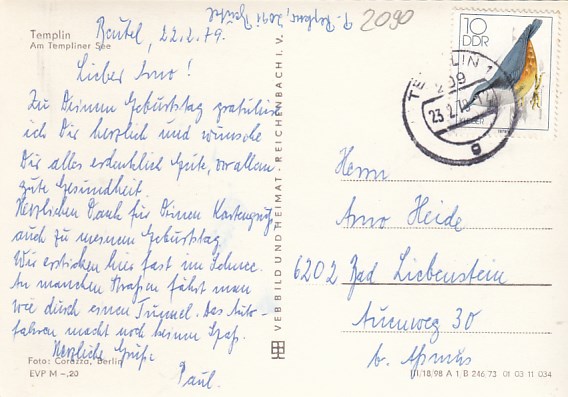 Templin
Am Templiner See
Beutel, 22.2.79.
Lieber Arno!
Zu Deinem Geburtstag gratuliere
ich Dir herzlich und wünsche
Dir alles erdenklich Gute, vor allem
gute Gesundheit.
Herzlichen Dank für Deinen Kartengruß
auch zu meinem Geburtstag.
Wir ersticken hier fast im Schnee.
In manchen Straßen fährt man
wie durch einen Tunnel. Das Auto-
fahren macht noch keinen Spaß.
Herzliche Grüße
Paul.
Foto: Corazza, Berlin
EVP M -,20
VEB BILD UND HEIMAT · REICHENBACH I. V.
2091 Beutel
2090
10
DDR
TEMPLIN 1
209
23.2.79
g
Herrn
Arno Heide
6202 Bad Liebenstein
Auenweg 30
III/18/98 A 1 B 246 73 01 03 11 034